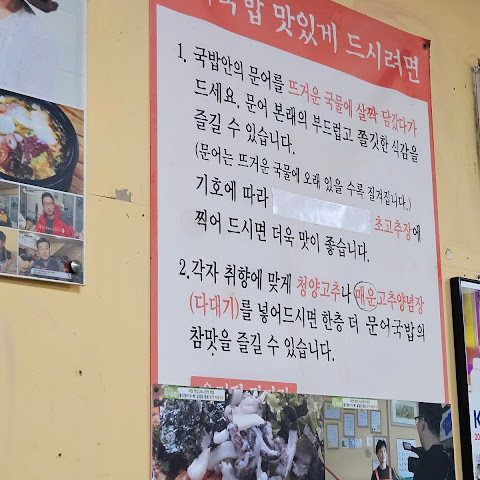 국밥 맛있게 드시려면
1. 국밥안의 문어를 뜨거운 국물에 살짝 담갔다가
드세요. 문어 본래의 부드럽고 쫄깃한 식감을
즐길 수 있습니다.
(문어는 뜨거운 국물에 오래 있을 수록 질겨집니다.)
기호에 따라 초고추장에
찍어 드시면 더욱 맛이 좋습니다.
2. 각자 취향에 맞게 청양고추나 매운고추양념장
(다대기)를 넣어드시면 한층 더 문어국밥의
참맛을 즐길 수 있습니다.